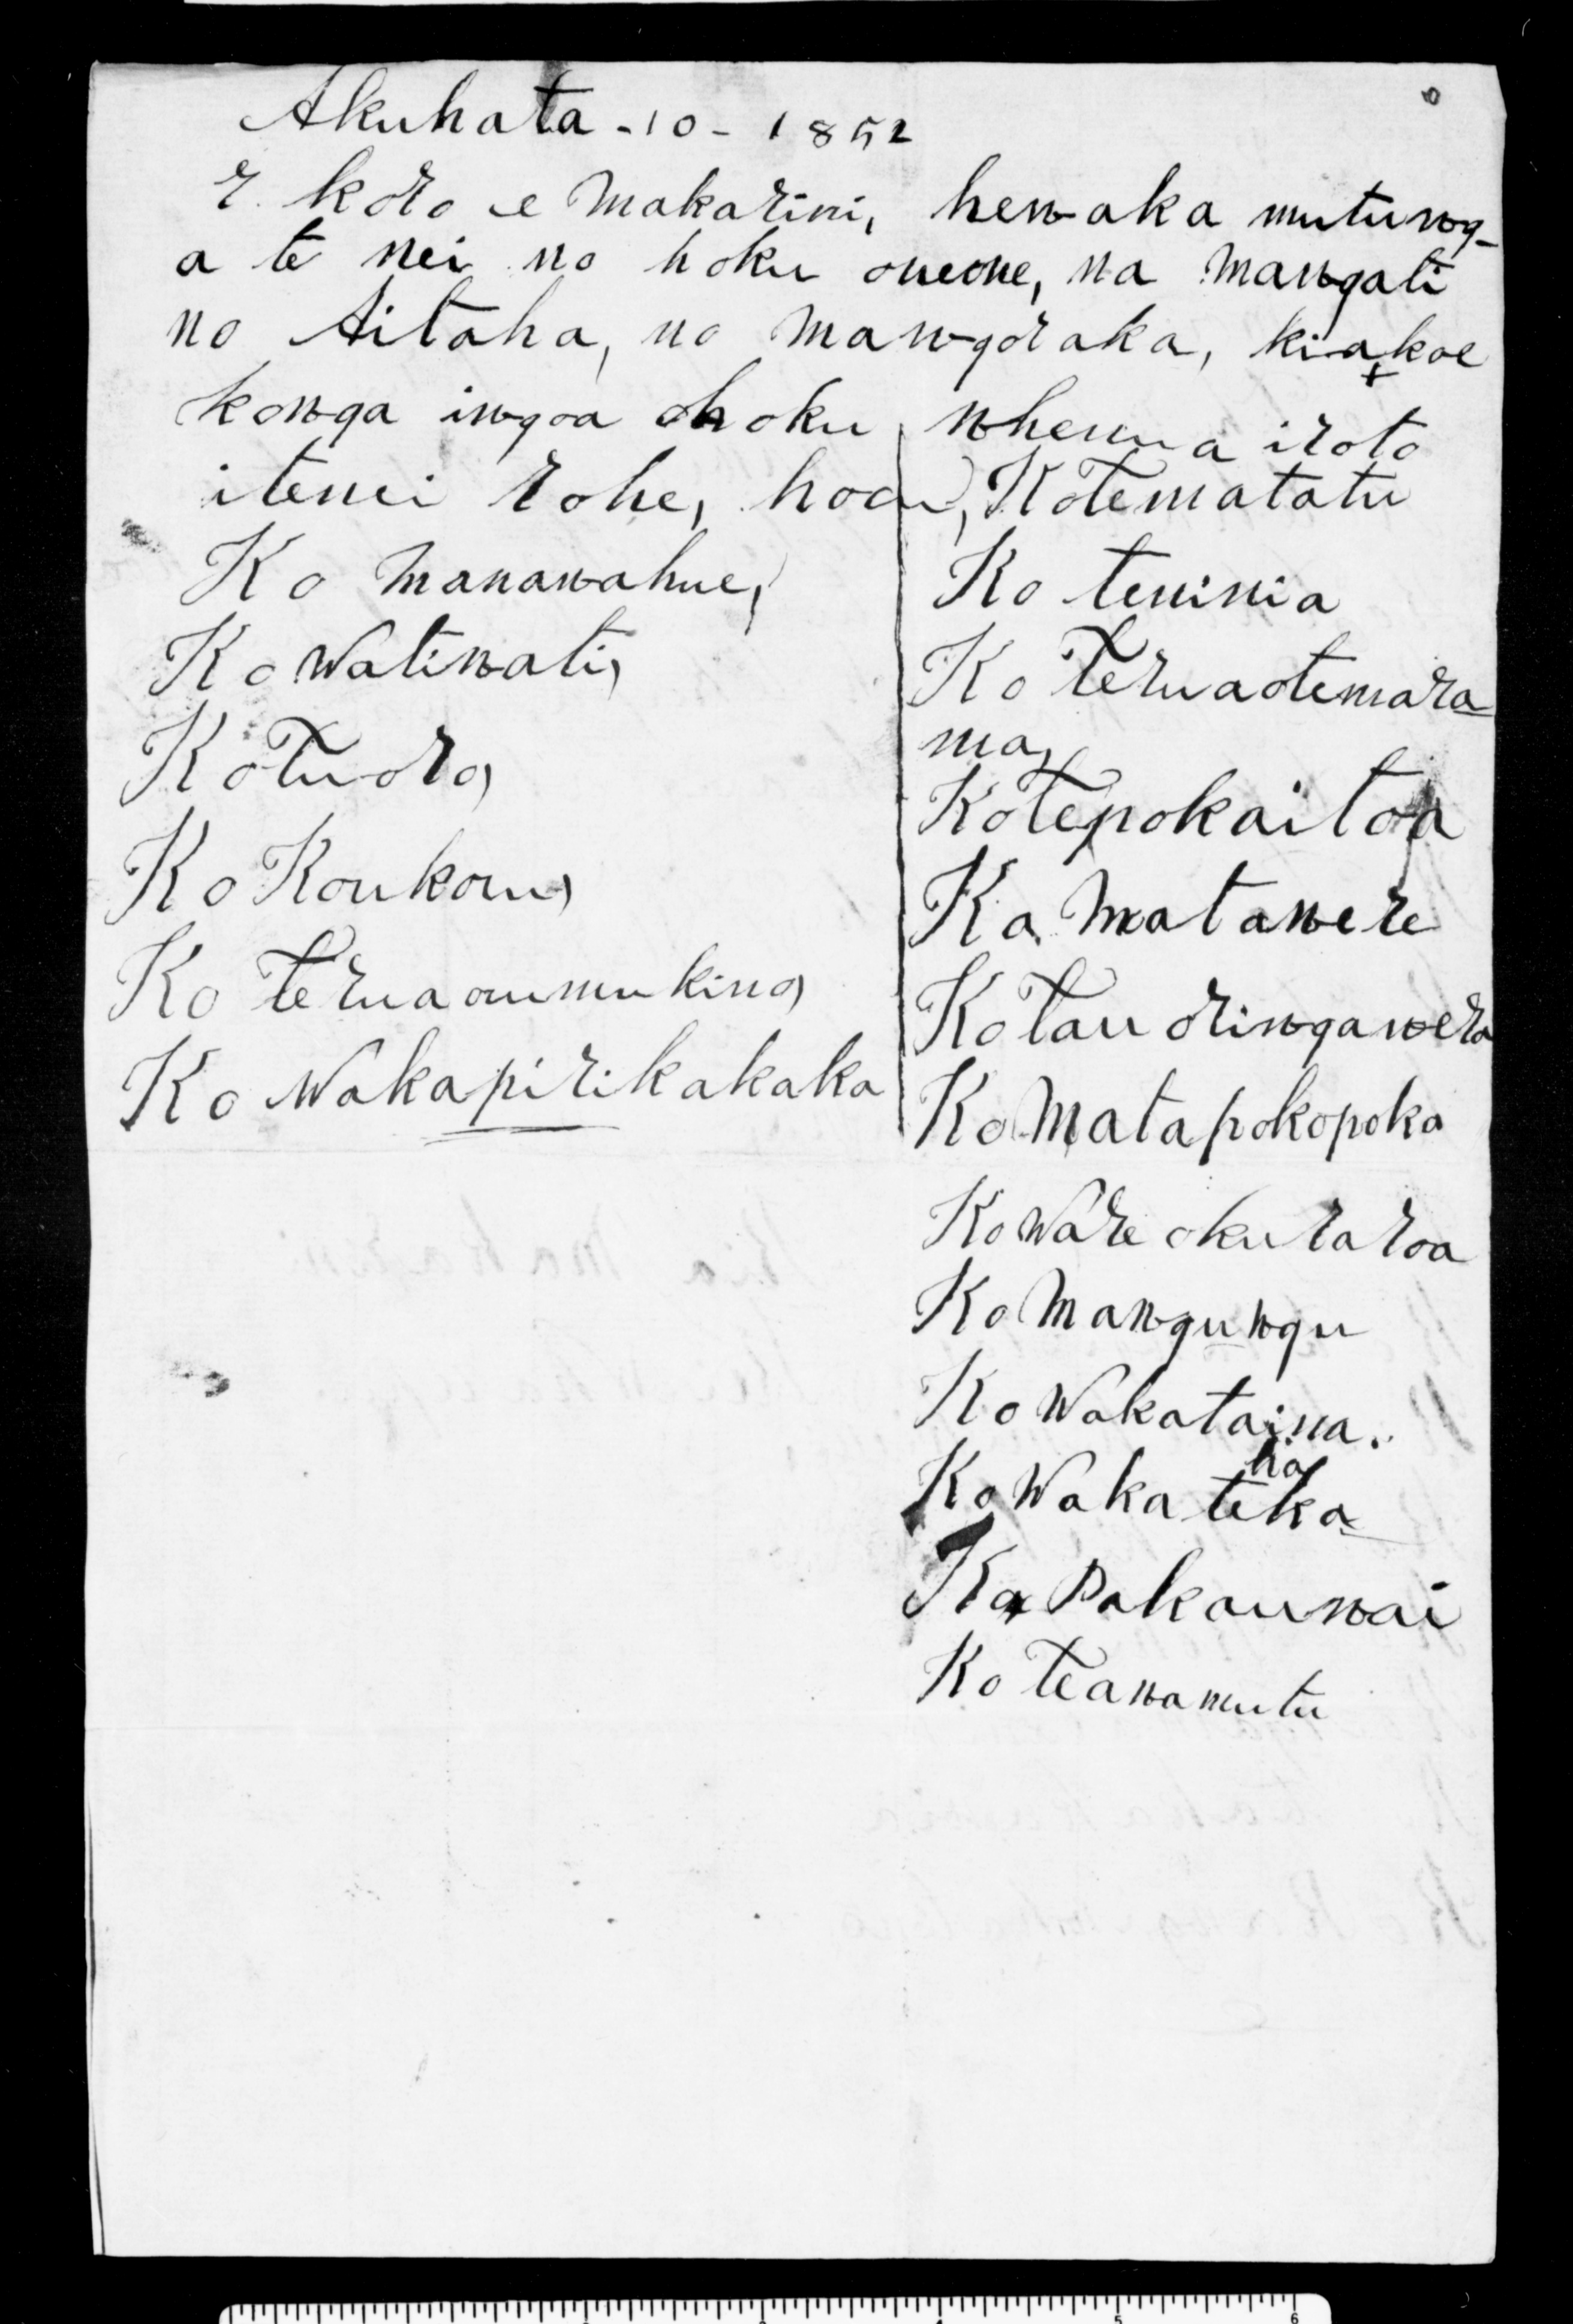 Akuhata - 10 - 1852
E koro e Makarini, hewaka mutung-
a te nei no hoku oneone, na Mangati
no Aitaha, no Mangoraka, kia koe
konga ingoa o hoku whenua iroto
itenei rohe, hoau,
Ko Manawahue,
Ko Watiwati,
Ko Tuoro,
Ko Koukou,
Ko Teruaoumukino,
Ko Wakapirikakaka
Kotematatu
Ko teninia
Ko Teruaotemara-
ma,
Kotepokaitoa
Ko Matawere
Ko Tauoringawera
Ko Matapokopoko
Ko Ware okuraroa
Ko Mangungu
Ko Wakataina.
Ko Waka teka
Ko Pakauwai
Ko Teawamutu